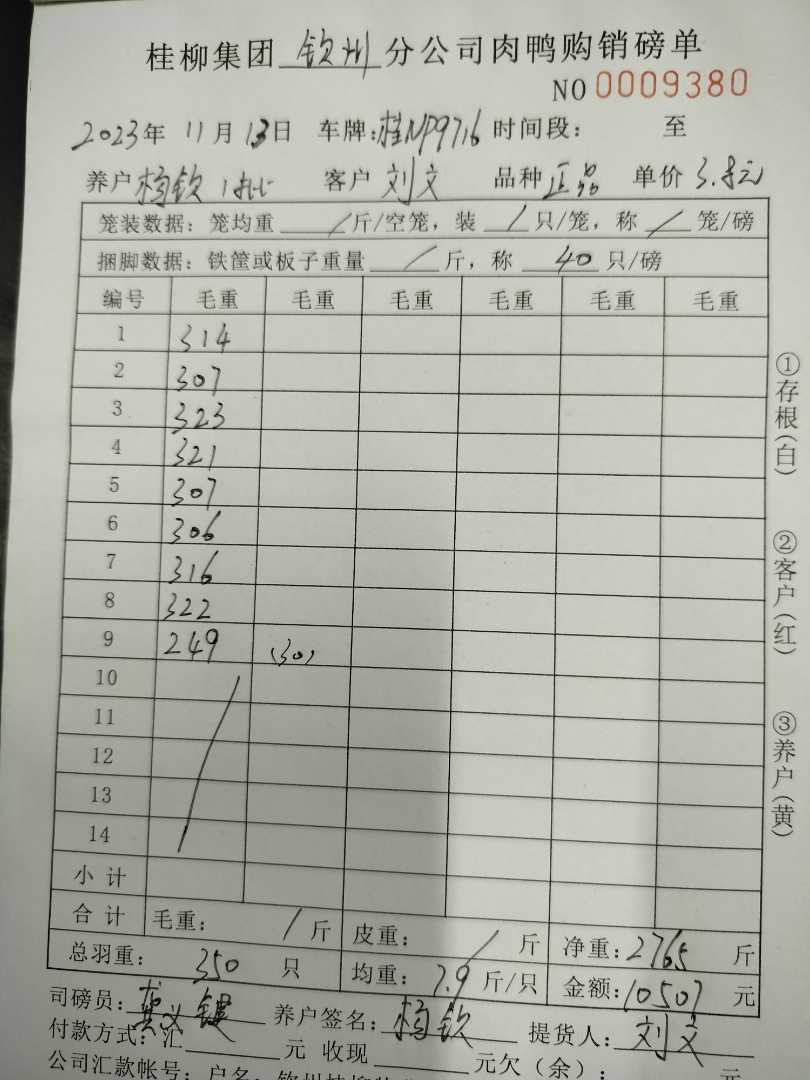 桂柳集团 钦州 分公司肉鸭购销磅单
NO 0009380
2023年 11月 13日 车牌:桂NP9716 时间段: 至
养户 杨钦 客户 刘文 品种 正品 单价 3.8元
笼装数据: 笼均重 / 斤/空笼, 装 / 只/笼, 称 / 笼/磅
捆脚数据: 铁筐或板子重量 / 斤, 称 40 只/磅
编号 毛重 毛重 毛重 毛重 毛重 毛重
1 314
2 307
3 323
4 321
5 307
6 306
7 316
8 322
9 249 (30)
10
11
12
13
14
小计
合计 毛重: / 斤 皮重: / 斤 净重: 2765 斤
总羽重: 350 只 均重: 7.9 斤/只 金额: 10507 元
司磅员: 养户签名: 杨钦 提货人: 刘文
付款方式: 汇 元 收现 元欠(余): 元
公司汇款帐号: 户名: 钦州桂柳
①存根(白)
②客户(红)
③养户(黄)